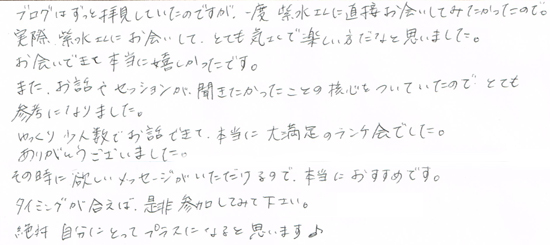 ブログはずっと拝見していたのですが、一度 紫水さんに直接お会いしてみたかったので。
実際、紫水さんにお会いして、とても気さくで楽しい方だなと思いました。
お会いできて本当に嬉しかったです。
また、お話やセッションが、聞きたかったことの核心をついていたので とても
参考になりました。
ゆっくり 少人数でお話できて、本当に 大満足のランチ会でした。
ありがとうございました。
その時に欲しいメッセージがいただけるので、本当におすすめです。
タイミングが合えば、是非 参加してみて下さい。
絶対 自分にとって プラスになると思います♪